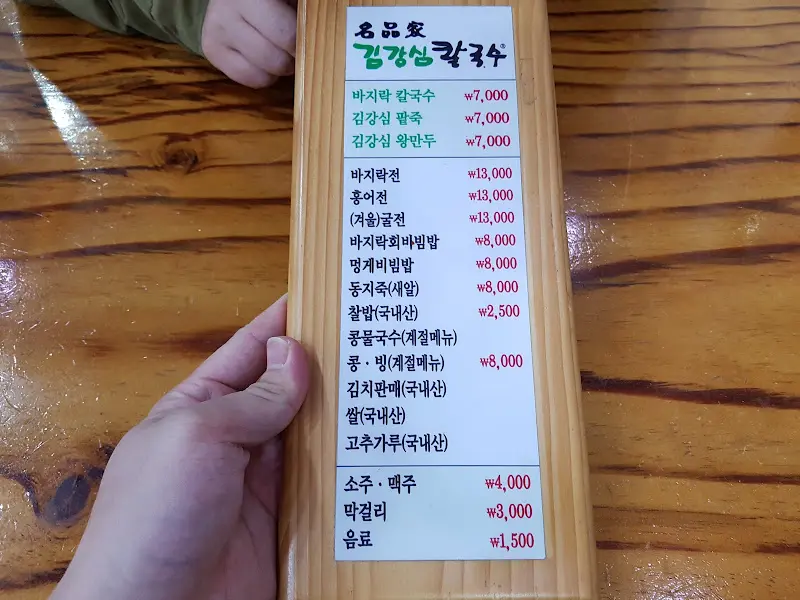 名品家
김강심 칼국수®
바지락 칼국수 ₩7,000
김강심 팥죽 ₩7,000
김강심 왕만두 ₩7,000
바지락전 ₩13,000
홍어전 ₩13,000
(겨울)굴전 ₩13,000
바지락회바빔밥 ₩8,000
멍게비빔밥 ₩8,000
동지죽(새알) ₩8,000
찰밥(국내산) ₩2,500
콩물국수(계절메뉴)
콩·빙(계절메뉴) ₩8,000
김치판매(국내산)
쌀(국내산)
고추가루(국내산)
소주·맥주 ₩4,000
막걸리 ₩3,000
음료 ₩1,500